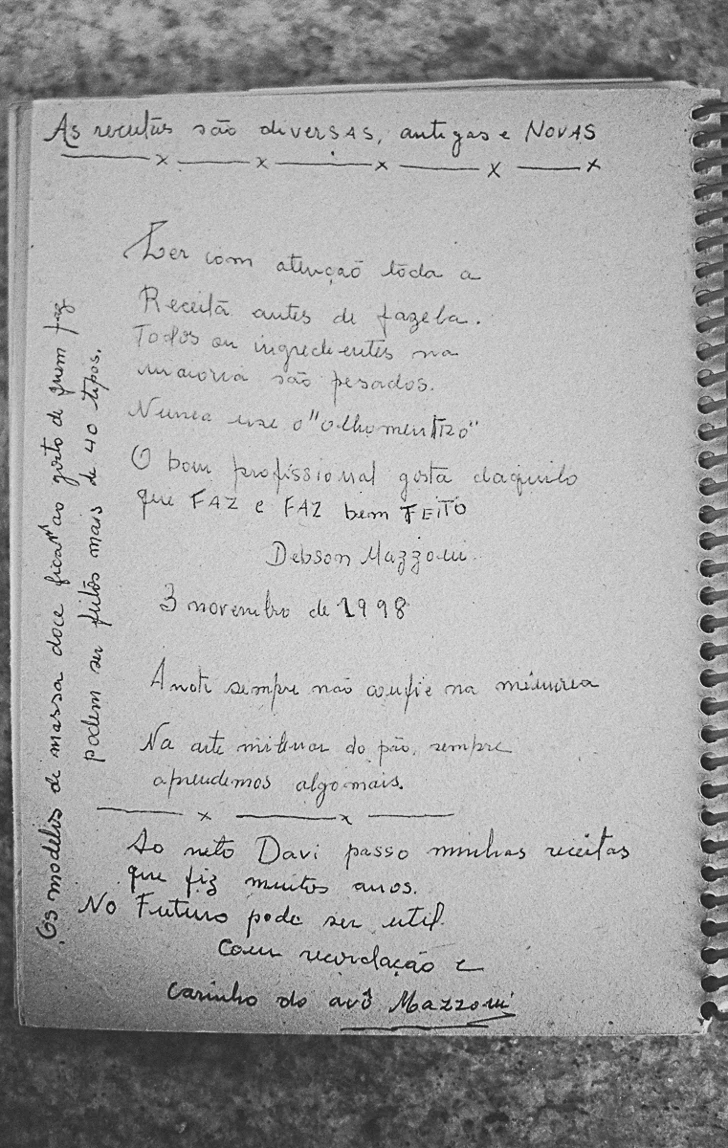 As receitas são diversas, antigas e NOVAS
Ler com atenção tôda a
Receita antes de fazela.
Todos ou ingredientes na
maioria são pesados.
Nunca use o "olhomentro"
O bom profissional gosta daquilo
que FAZ e FAZ bem FEITO
Debson Mazzoni
3 novembro de 1998
Anote sempre não confie na memória
Na arte milenar do pão, sempre
aprendemos algo mais.
Ao neto Davi passo minhas receitas
que fiz muitos anos.
No Futuro pode ser util.
Com recordação e
carinho do avô Mazzoni
Os modelos de massa doce ficam ao gosto de quem faz
podem ser feitos mais de 40 tipos.